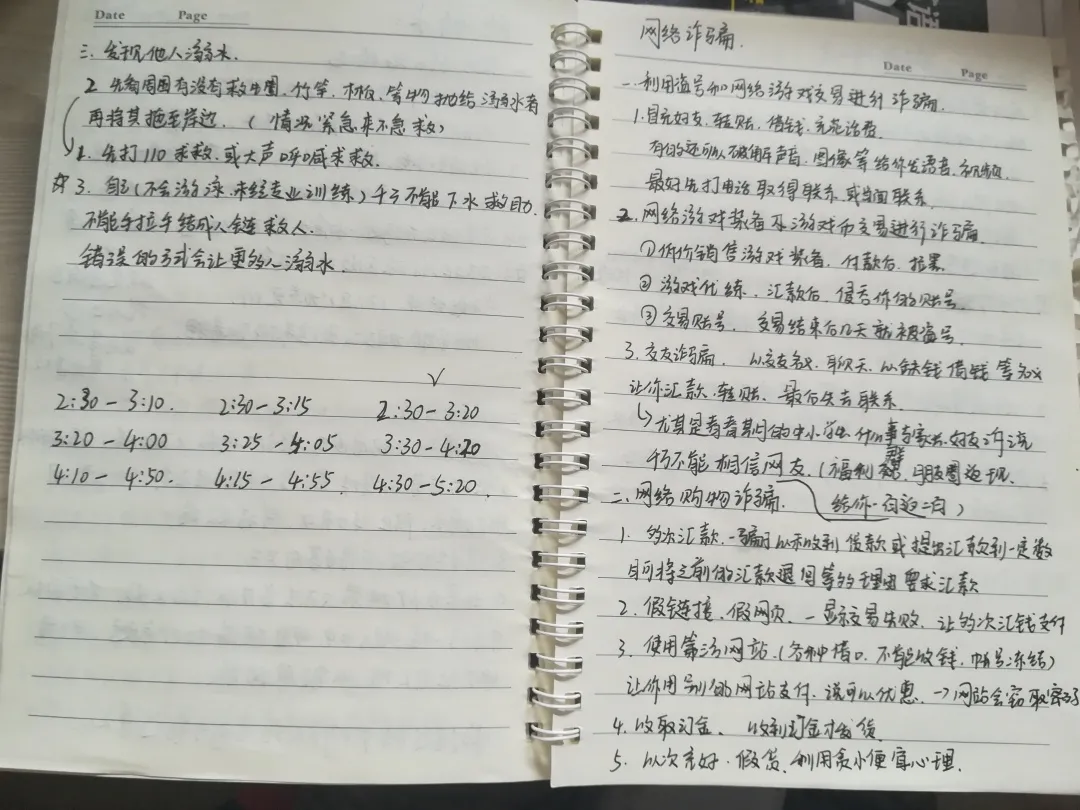 Date Page
三、发现他人溺水.
2. 先看周围有没有救生圈、竹竿、木板、等物抛给溺水者
再将其拖至岸边. (情况紧急来不急救)
1. 先打110求救.或大声呼喊求救.
☆3. 自己(不会游泳.未经专业训练)千万不能下水救助.
不能手拉手结成人链救人.
错误的方式会让更多的人溺水.
✓
2:30-3:10. 2:30-3:15 2:30-3:20
3:20-4:00 3:25-4:05 3:30-4:20
4:10-4:50. 4:15-4:55. 4:30-5:20.
网络诈骗.
Date Page
一、利用盗号和网络游戏交易进行诈骗.
1.冒充好友、转账、借钱、充花话费.
有的还可以用声音、图像等给你发语音、视频.
最好先打电话取得联系.或当面联系.
2. 网络游戏装备及游戏币交易进行诈骗.
①低价销售游戏装备、付款后、拉黑.
②游戏代练、汇款后、侵吞你的账号.
③交易账号、交易结束后几天就被盗号.
3.交友诈骗. 以交友名义、聊天、以缺钱借钱等名义
让你汇款.转账、最后失去联系.
↳尤其是青春期间的中小学生 什么事与家长、好友诉说
千万不能相信网友.(福利群、朋友圈返现.
给你一百返二百)
二、网络购物诈骗.
1. 多次汇款.一骗子以未收到货款或提出汇款到一定数
目可将之前的汇款退回等的理由要求汇款
2. 假链接、假网页、一显示交易失败、让多次汇钱支付
3. 使用第三方网站.(各种借口、不能收钱、帐号冻结)
让你用别的网站支付、说可以优惠.→网站会窃取密码
4. 收取订金、收到订金才发货.
5. 以次充好.假货、利用贪小便宜心理.